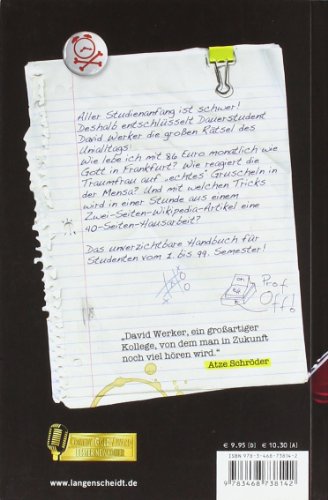 Aller Studienanfang ist schwer!
Deshalb entschlüsselt Dauerstudent
David Werker die großen Rätsel des
Unialltags:
Wie lebe ich mit 86 Euro monatlich wie
Gott in Frankfurt? Wie reagiert die
Traumfrau auf „echtes" Gruscheln in
der Mensa? Und mit welchen Tricks
wird in einer Stunde aus einem
Zwei-Seiten-Wikipedia-Artikel eine
40-Seiten-Hausarbeit?
Das unverzichtbare Handbuch für
Studenten vom 1. bis 99. Semester!
Prof
Off!
„David Werker, ein großartiger
Kollege, von dem man in Zukunft
noch viel hören wird."
Atze Schröder
€ 9.95 [D] € 10.30 [A]
ISBN 978-3-468-73814-2
9 783468 738142
www.langenscheidt.de